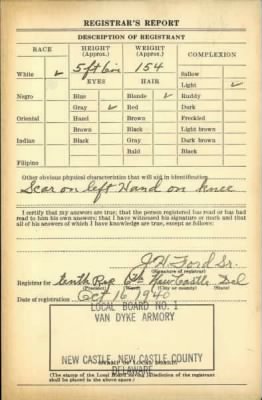 REGISTRAR'S REPORT
DESCRIPTION OF REGISTRANT
RACE HEIGHT (Approx.) WEIGHT (Approx.) COMPLEXION
White ✓ 5 ft 6 in 154 Sallow
EYES HAIR Light ✓
Negro Blue Blonde ✓ Ruddy
Gray ✓ Red Dark
Oriental Hazel Brown Freckled
Brown Black Light brown
Indian Black Gray Dark brown
Bald Black
Filipino
Other obvious physical characteristics that will aid in identification
Scar on left Hand on knee
I certify that my answers are true; that the person registered has read or has had
read to him his own answers; that I have witnessed his signature or mark and that
all of his answers of which I have knowledge are true, except as follows:
J. H. Ford Sr.
(Signature of registrar)
Registrar for Tenth Rep 6th New Castle Del
(Precinct) (Ward) (City or county) (State)
Date of registration Oct 16 1940
LOCAL BOARD NO. 1
VAN DYKE ARMORY
NEW CASTLE, NEW CASTLE COUNTY
DELAWARE
(STAMP OF LOCAL BOARD)
(The stamp of the Local Board having jurisdiction of the registrant
shall be placed in the above space.)